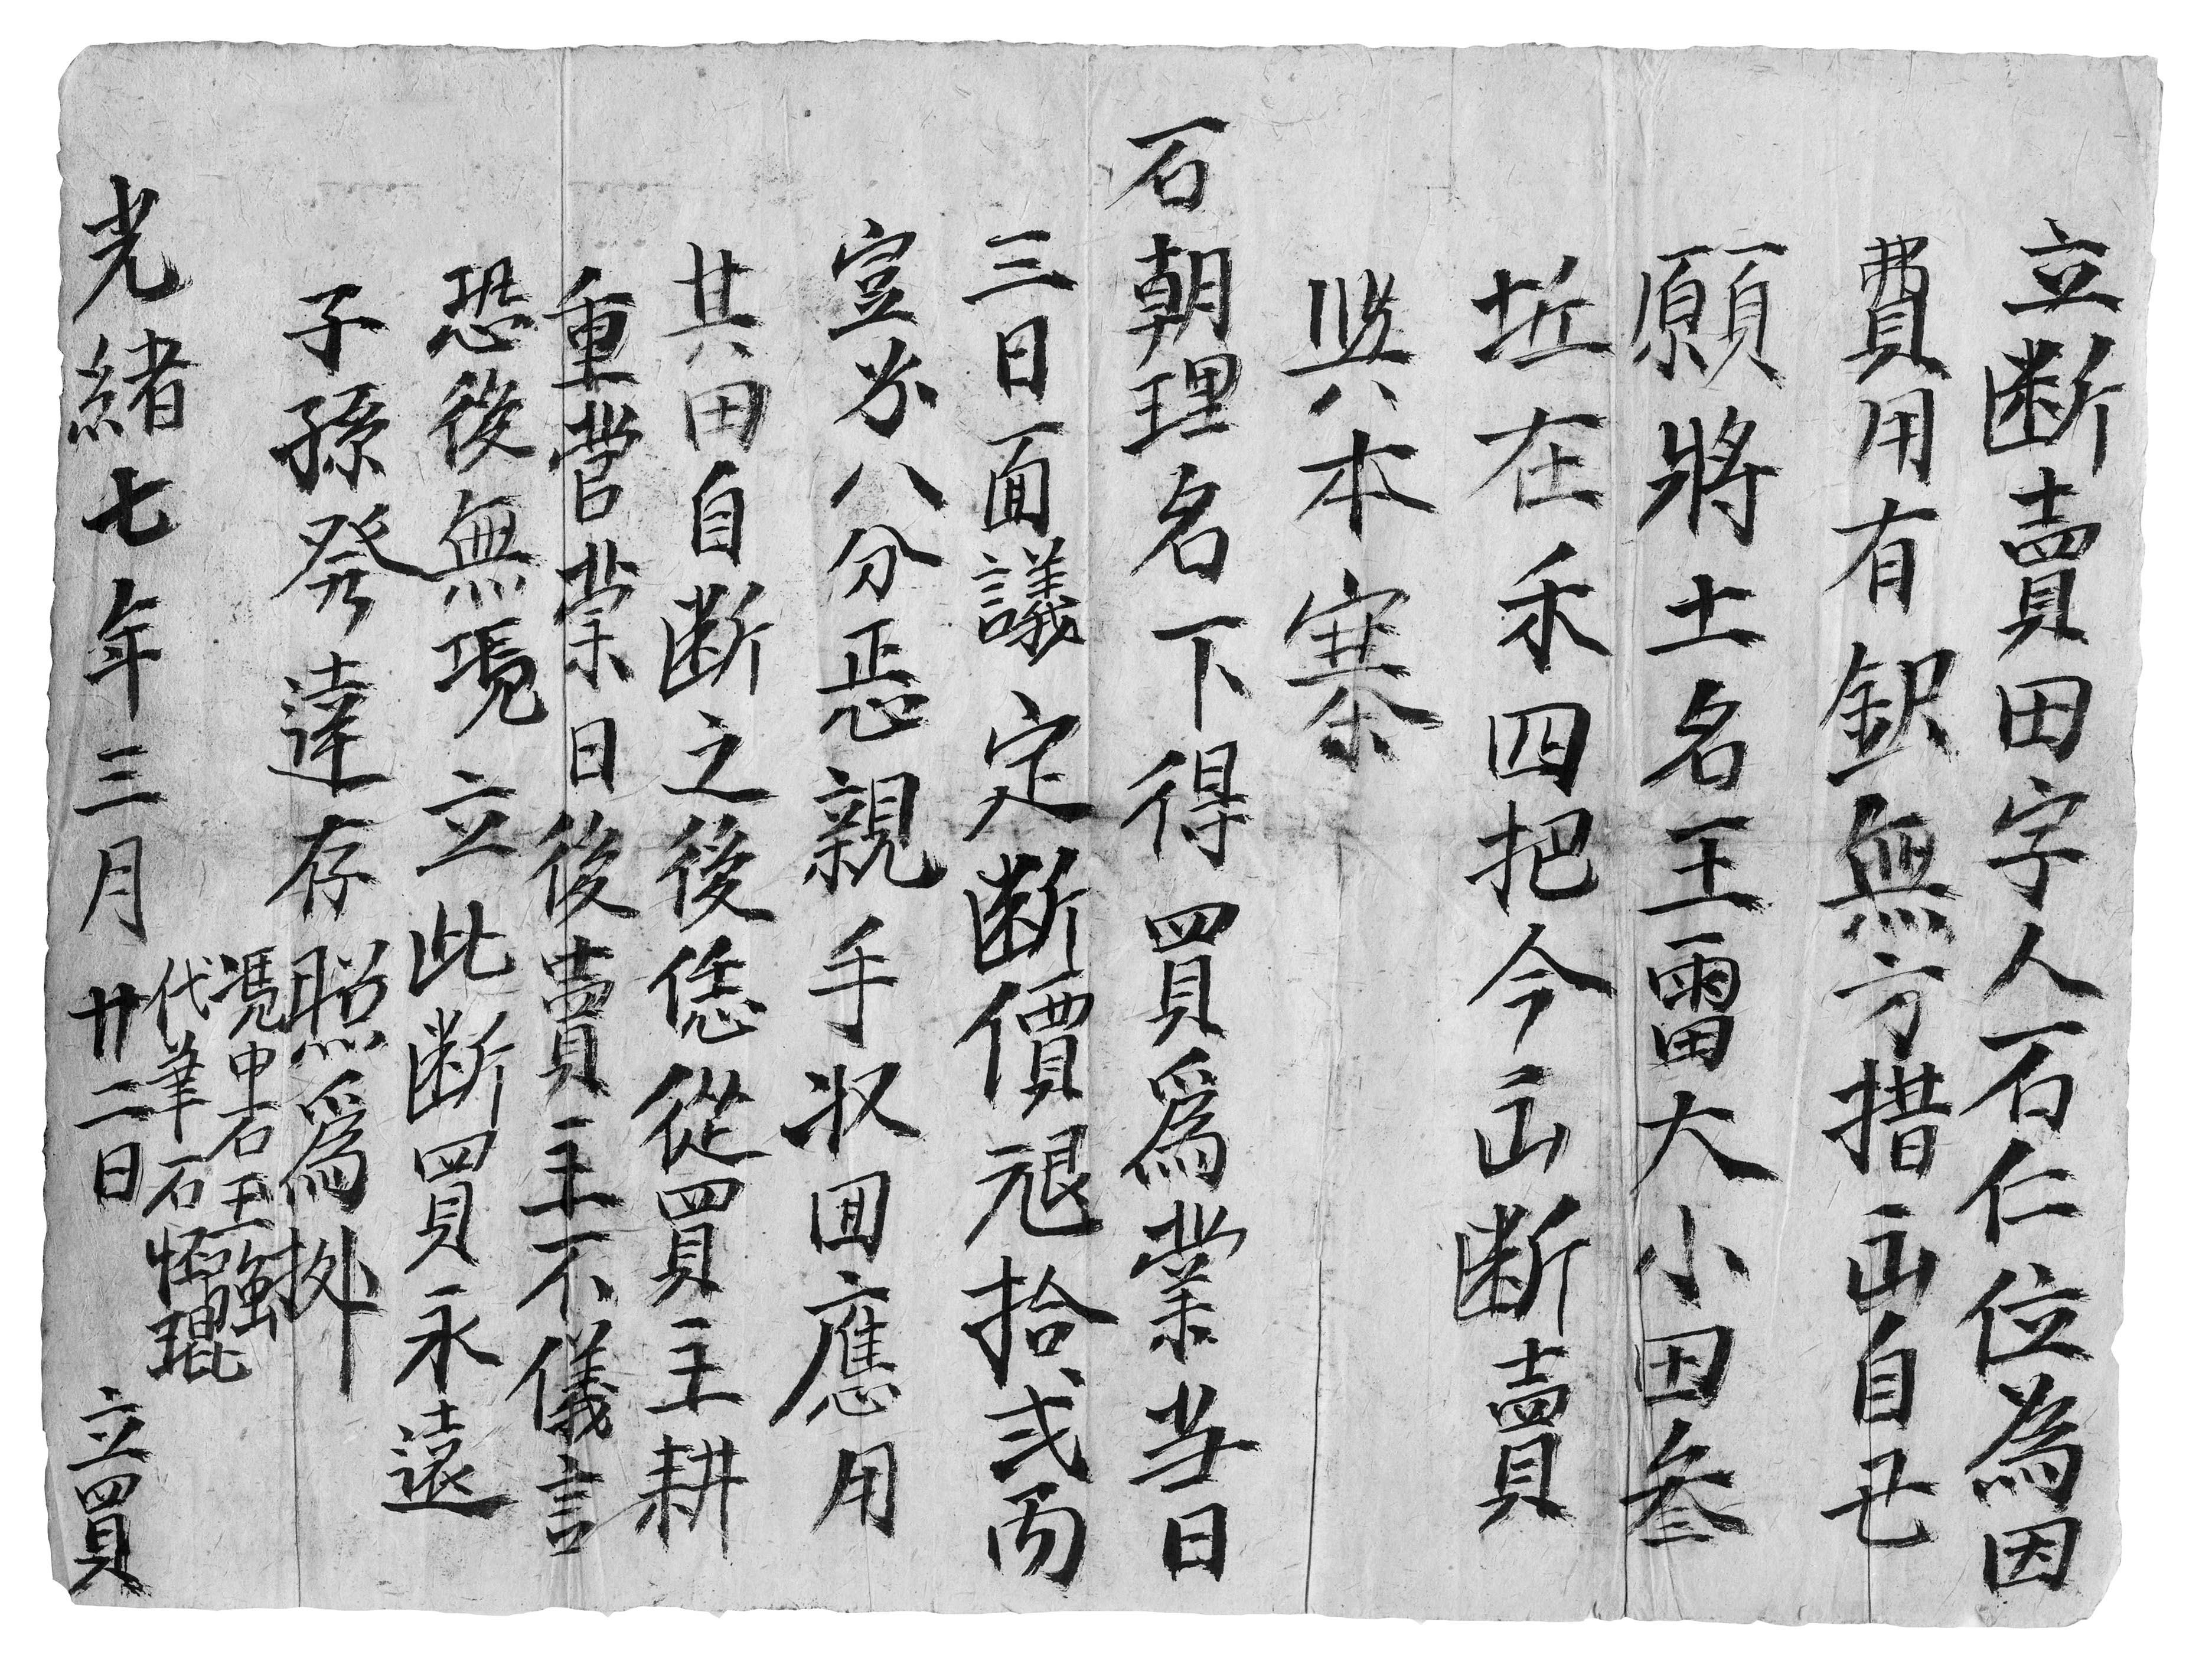 立断賣田字人石仁位為因
費用有䤚無方措出自丑
願將土名王雷大小田叄
坵在禾四把今出断賣
與本寨
石朝理名下得買爲業当日
三日面議定断價艮拾弍両
壹分八分恶親手収囬應用
其田自断之後恁從買主耕
重营業日後賣主不儀言
恐後無慿立此断買永遠
子孫發達存照爲拠
慿中石玉
代筆石
光緒七年三月廿二日 立買